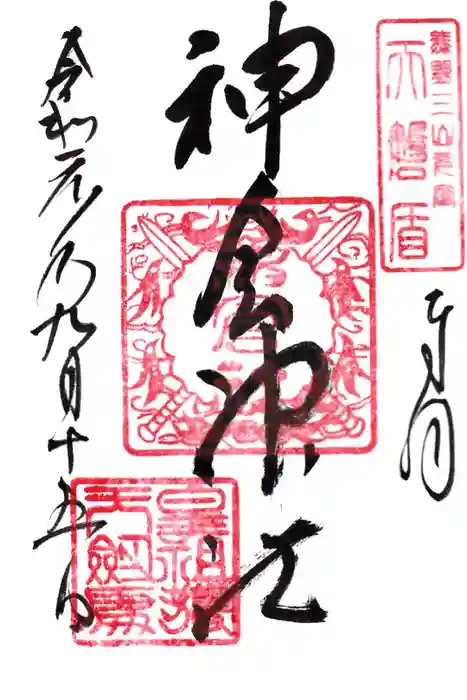 熊野三山元宮
天磐盾
奉拝
神倉神社
令和元年九月十五日